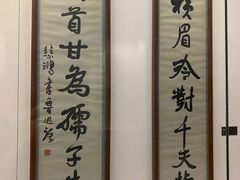 横眉冷對千夫指
首甘為孺子牛
悲鴻書魯迅語